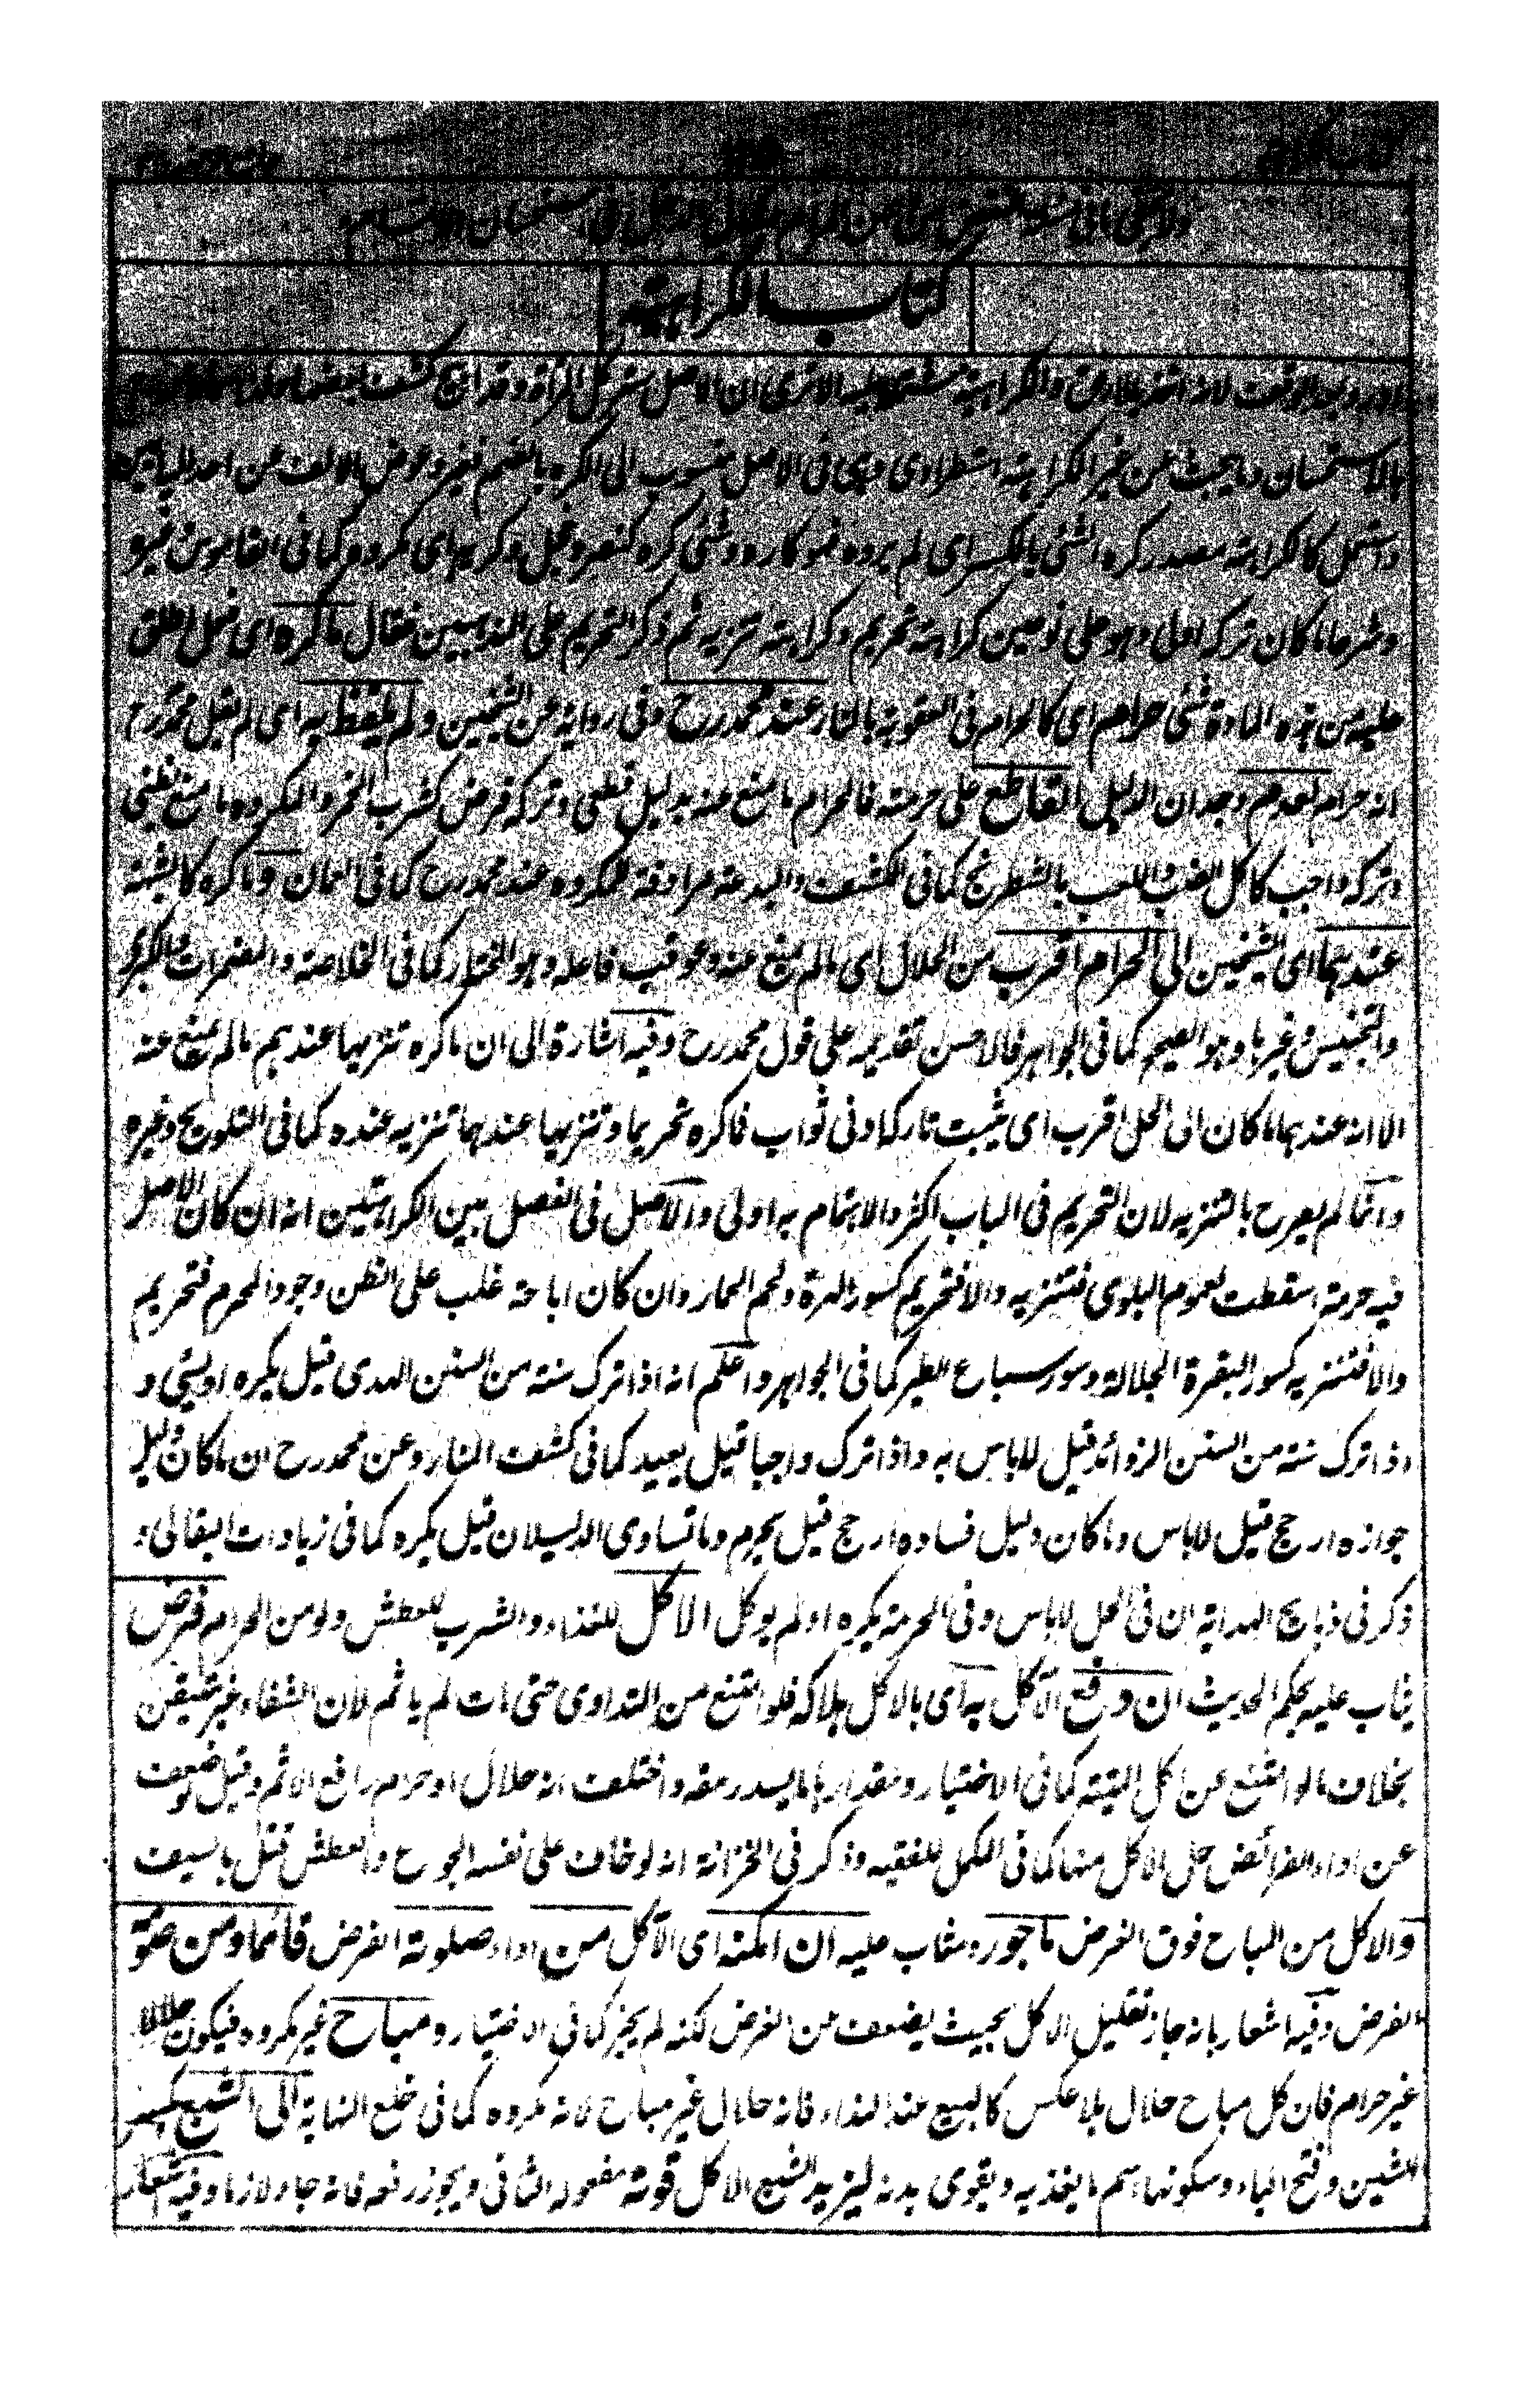 كتاب الكراهية
بالاستحسان وما يبحث عن غير الكراهية استطرادي وهي في الاصل منسوب الى الكره بالضم
واستعمل كالكراهة مصدر كره الشئ بالكسر اى لم يرده فهو كاره وشئ كره كنصر وخجل وكريه اى مكروه كما في القاموس فهو
وشرعا ما كان تركه اولى وهو على نوعين كراهة تحريم وكراهة تنزيه ثم ذكر التحريم على المذهبين فقال ما كره اى فعل اطلق
عليه من هذه المادة شئ حرام اى كالحرام في العقوبة بالنار عند محمد رح وفي رواية عن الشيخين ولم يتلفظ به اى لم يقل محمد رح
انه حرام لعدم وجدان الدليل القاطع على حرمته فالحرام ما منع عنه بدليل قطعي وتركه فرض كشرب الخمر والمكروه ما منع بظني
وتركه واجب كاكل الضب واللعب بالشطرنج كما في الكشف والبدعة مرادفة للمكروه عند محمد رح كما في التمان وما كره كائنته
عندهما اى الشيخين الى الحرام اقرب من الحلال اى ما لم يمنع عنه وعوقب فاعله وهو المختار كما في الخلاصة والمضمرات والكبرى
والتجنيس وغيرها وهو الصحيح كما في الجواهر فالاحسن تقديمه على قول محمد رح وفيه اشارة الى ان ما كره تنزيها عندهم ما لم يمنع عنه
الا انه عندهما ما كان الى الحل اقرب اى يثبت تاركه ادنى ثواب فاكره تحريما وتنزيها عندهما تنزيه عنده كما في التلويح وغيره
وانما لم يصرح بالتنزيه لان التحريم في الباب اكثر والاهتمام به اولى والاصل في الفصل بين الكراهتين انه ان كان الاصل
فيه حرمة اسقطت لعموم البلوى فتنزيه والا فتحريم كسور الهرة ولحم الحمار وان كان اباحة غلب على الظن وجود المحرم فتحريم
والا فتنزيه كسور البقرة الجلالة وسور سباع الطير كما في الجواهر واعلم انه اذا ترك سنة من السنن الهدى قيل يكره او يسئ و
اذا ترك سنة من السنن الزوائد قيل لاباس به واذا ترك واجبا قيل يعيد كما في كشف المنار وعن محمد رح ان ما كان دليل
جوازه ارجح قيل لاباس وما كان دليل فساده ارجح قيل يحرم وما تساوى الدليلان قيل يكره كما في زيادات البقالى و
ذكر في ذبايح الهداية ان في الحل لاباس وفي الحرمة يكره او لم يوكل الاكل للغذاء والشرب للعطش ولو من الحرام فرض
يثاب عليه بحكم الحديث ان دفع الاكل به اى بالاكل هلاكه فلو امتنع من التداوى حتى مات لم ياثم لان الشفاء غير متيقن
بخلاف ما لو امتنع عن اكل الميتة كما في الاختيار ومقدارها ما يسد رمقه واختلف انه حلال او حرام رافع الاثم وقيل لو ضعف
عن اداء الفرائض حل الاكل منها كما في المكمل للفقيه وذكر في الخزانة انه لو خاف على نفسه الجوع والعطش قتل بالسيف
والاكل من المباح فوق الفرض ماجور ومثاب عليه ان امكنه اى الآكل من اداء صلوة الفرض قائما ومن صوم
الفرض وفيه اشعار بانه جاز تقليل الاكل بحيث يضعف من الفرض لكنه لم يجز كما في الاختيار ومباح غير مكروه فيكون حلالا
غير حرام فان كل مباح حلال بلا عكس كالبيع عند النداء فانه حلال غير مباح لانه مكروه كما في خلع النهاية الى الشبع بكسر
الشين وفتح الباء وسكونها اسم ما يغذيه ويقوى بدنه ليزيد الشبع الاكل قوته مفعوله الثاني ويجوز رفعه فانه جاء لازما وفيه اشعار